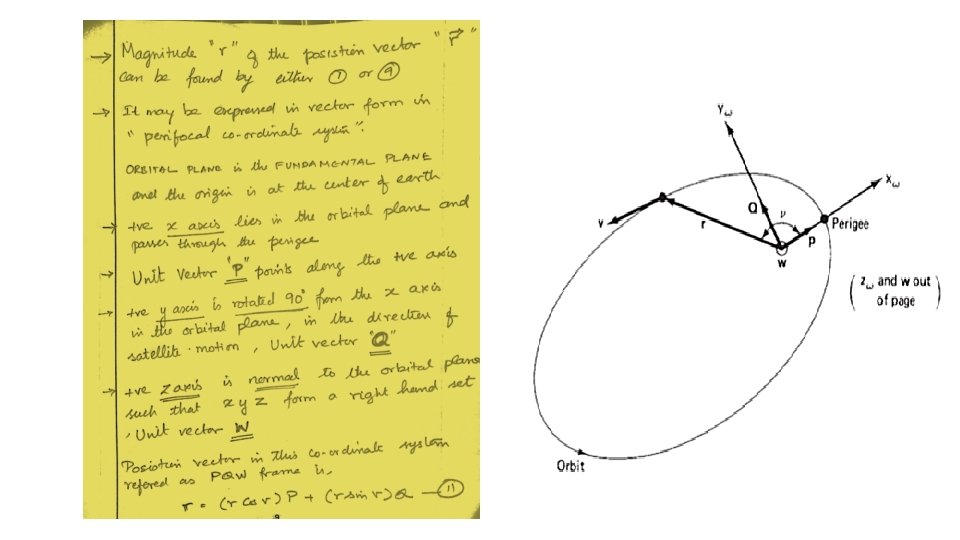 → Magnitude "r" of the posistion vector "r⃗"
can be found by either ① or ⑨
→ It may be expressed in vector form in
" perifocal co-ordinate system ".
ORBITAL PLANE is the FUNDAMENTAL PLANE
and the origin is at the center of earth
→ +ve x axis lies in the orbital plane and
passes through the perigee
→ Unit Vector "P" points along the +ve axis
→ +ve y axis is rotated 90° from the x axis
in the orbital plane, in the direction of
satellite motion, Unit vector "Q"
→ +ve z axis is normal to the orbital plane
such that x y z form a right hand set
, Unit vector W
Posistion vector in this co-ordinate system
refered as PQW frame is,
r = (r cos ν) P + (r sin ν) Q — ⑪
Yω
Xω
Q
ν
v
r
P
Perigee
W
( zω and w out
of page )
Orbit